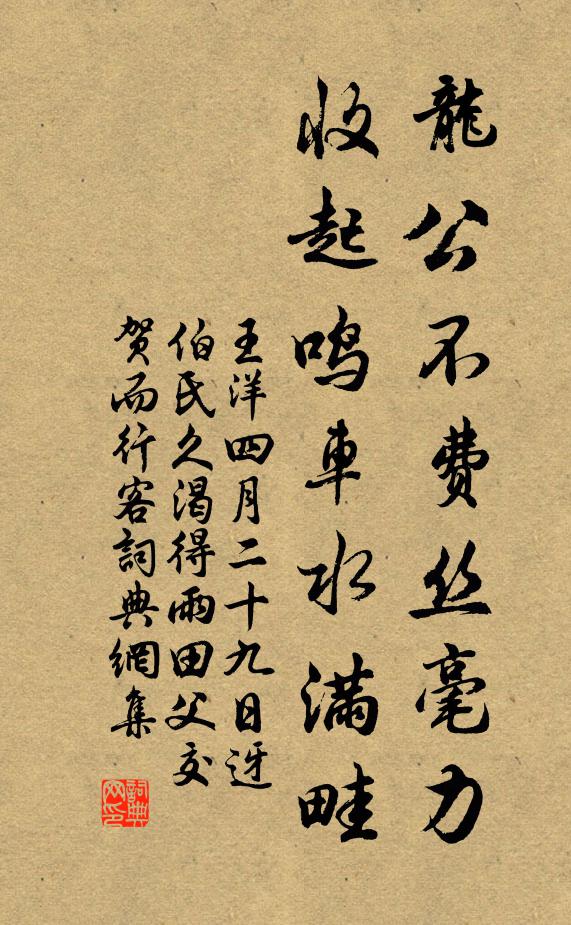 龍公不費丝毫力
收起鸣車水滿畦
王洋四月二十九日迓
伯氏久渴得雨田父交
贺而行客詞典網集
詞典网印